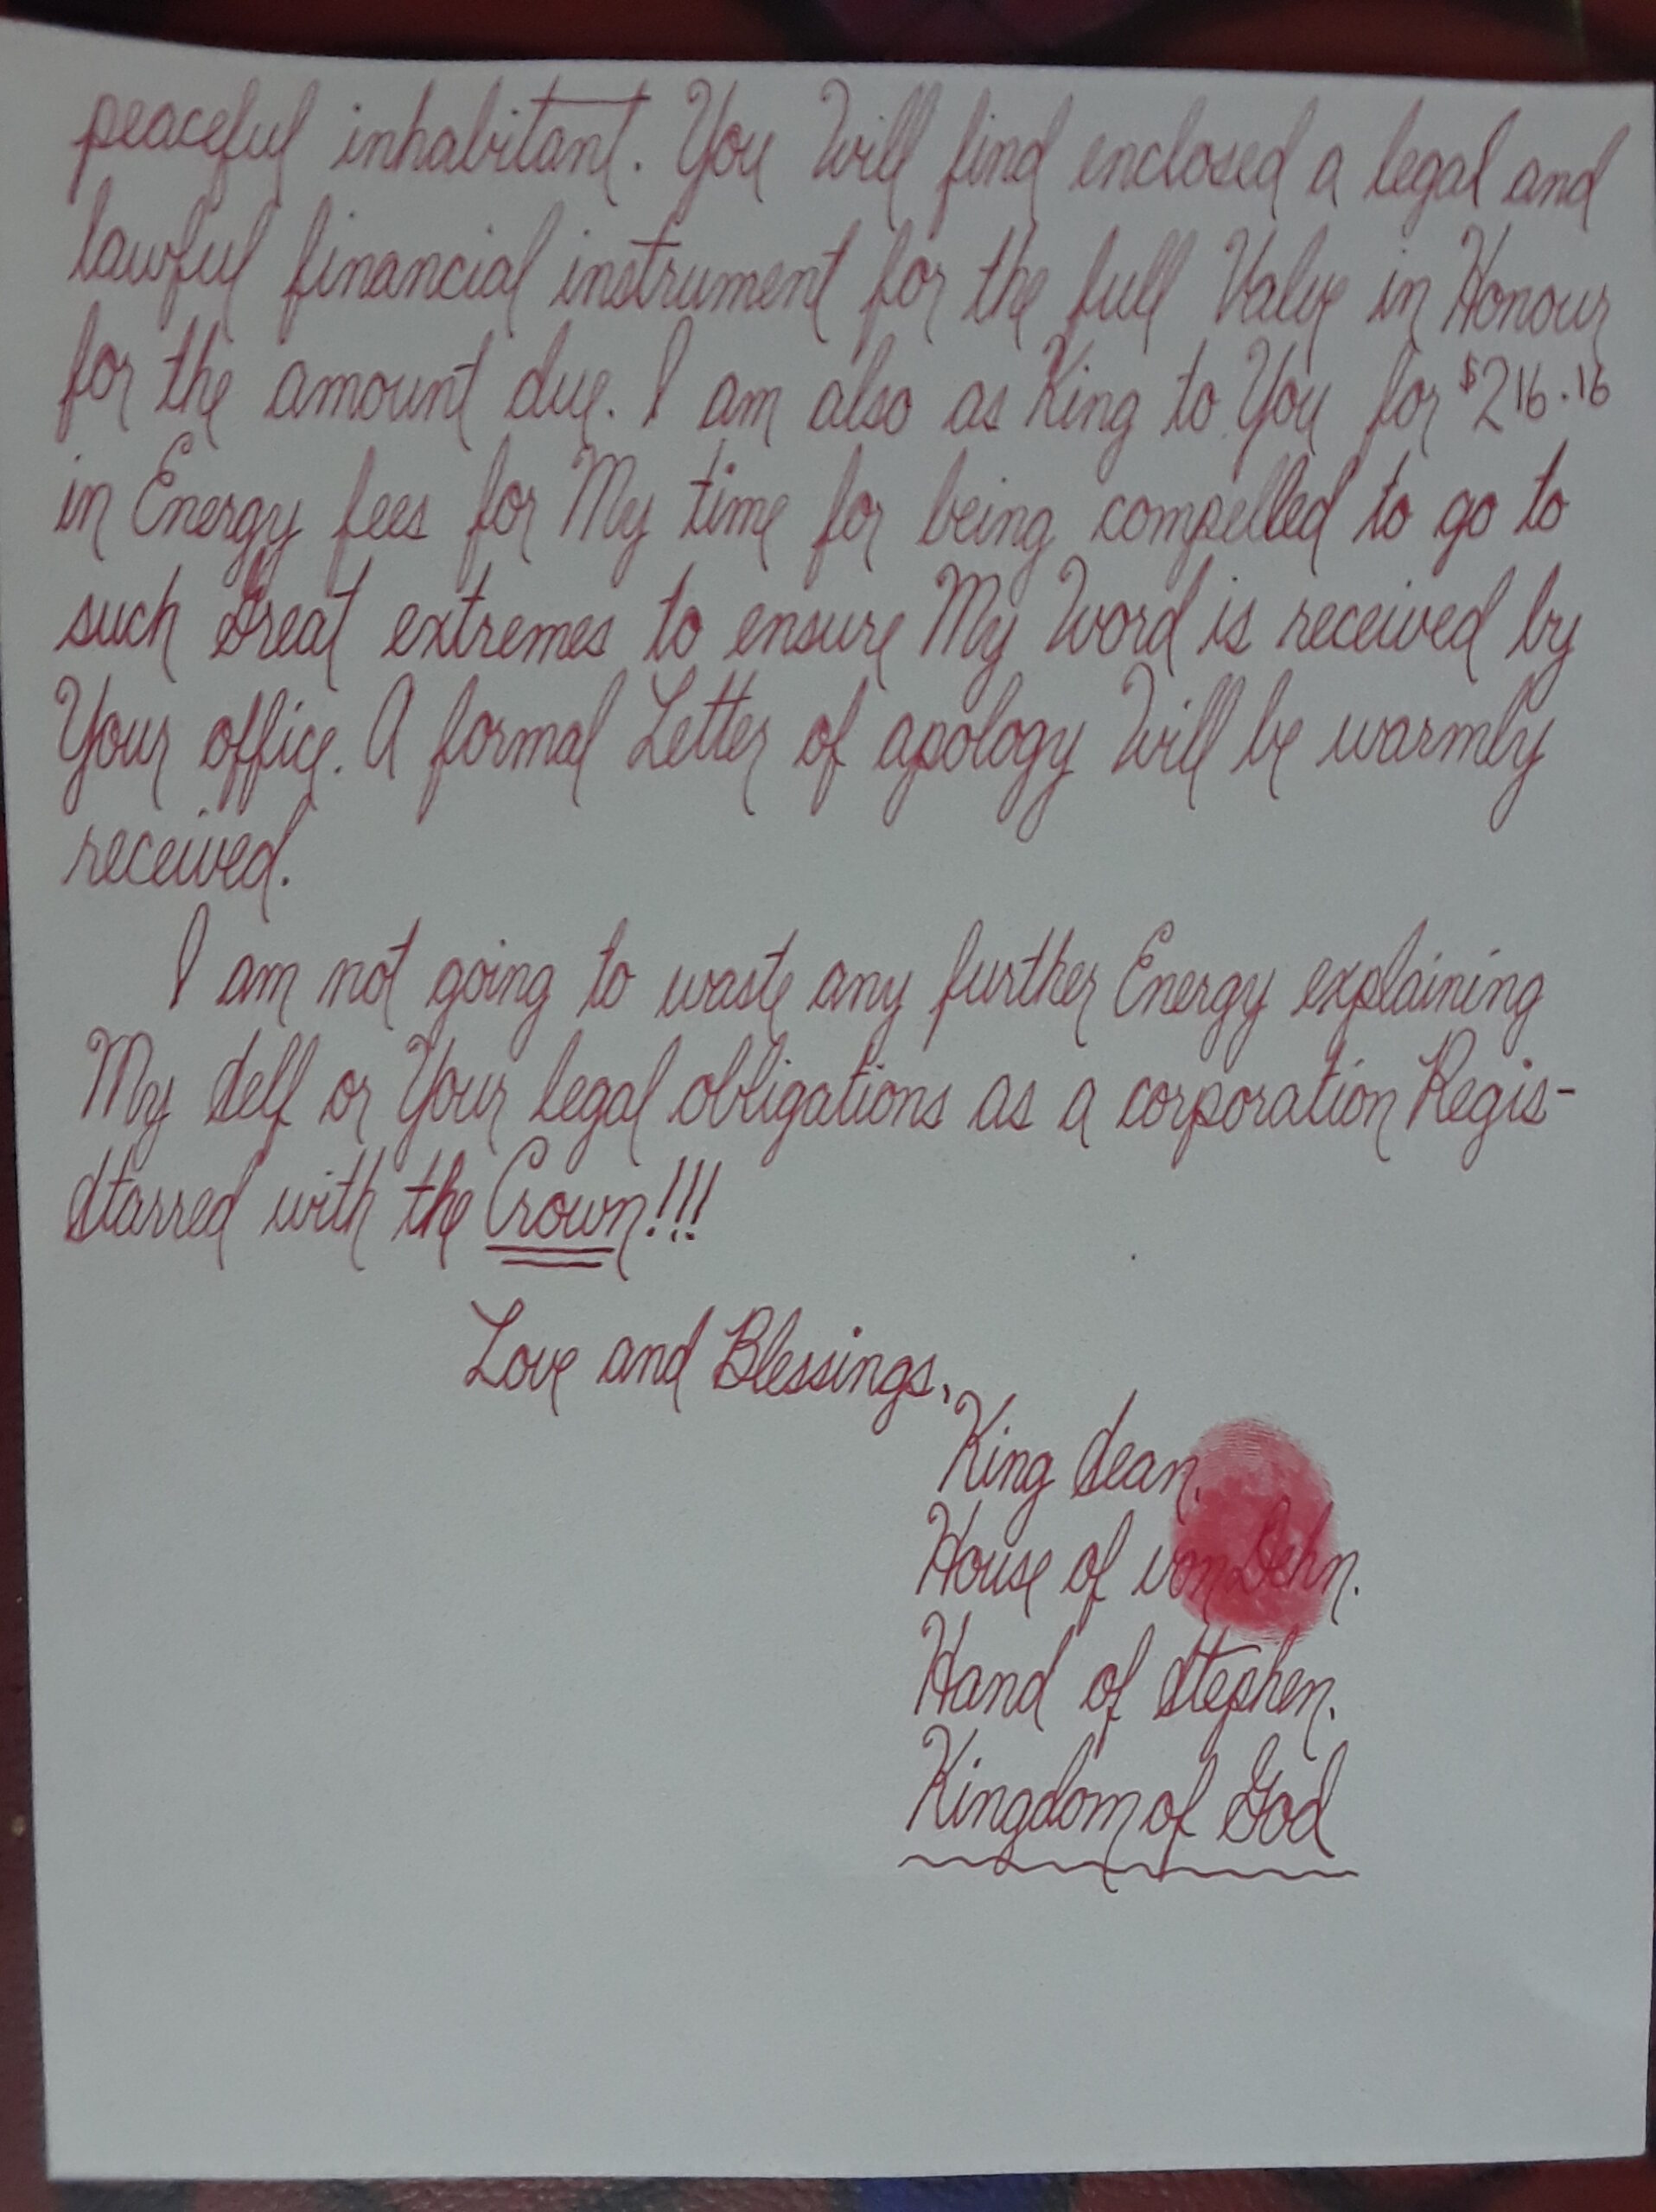 peaceful inhabitant. You Will find enclosed a legal and
lawful financial instrument for the full Value in Honour
for the amount due. I am also as King to You for $216.16
in Energy fees for My time for being compelled to go to
such Great extremes to ensure My Word is received by
Your office. A formal Letter of apology Will be warmly
received.
I am not going to waste any further Energy explaining
My Self or Your legal obligations as a corporation Regis-
Starred with the Crown!!!
Love and Blessings,
King Sean,
House of von Dehn.
Hand of Stephen.
Kingdom of God